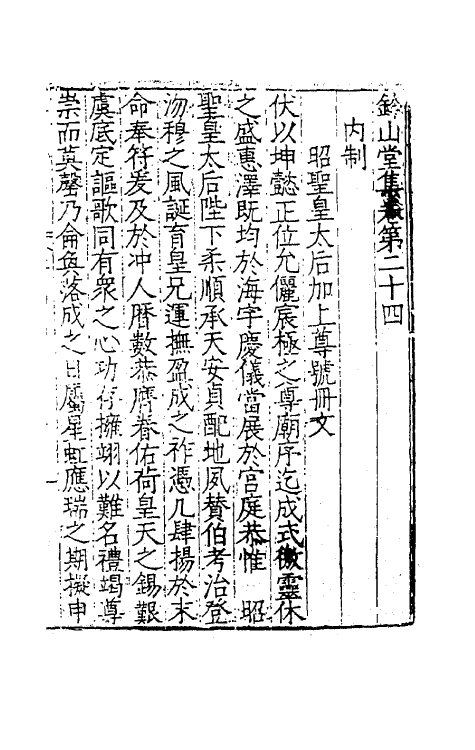 鈐山堂集卷第二十四
內制
昭聖皇太后加上尊號冊文
伏以坤懿正位允儷宸極之尊廟序迄成式徽靈休
之盛惠澤既均於海宇慶儀當展於宮庭恭惟 昭
聖皇太后陛下柔順承天安貞配地夙賛伯考治登
沕穆之風誕育皇兄運撫盈成之祚憑几肆揚於末
命奉符爰及於冲人曆數恭膺眷佑荷皇天之錫艱
虞底定謳歌同有衆之心功存擁翊以難名禮竭尊
崇而莫罄乃侖奐落成之日屬星虹應瑞之期擬申